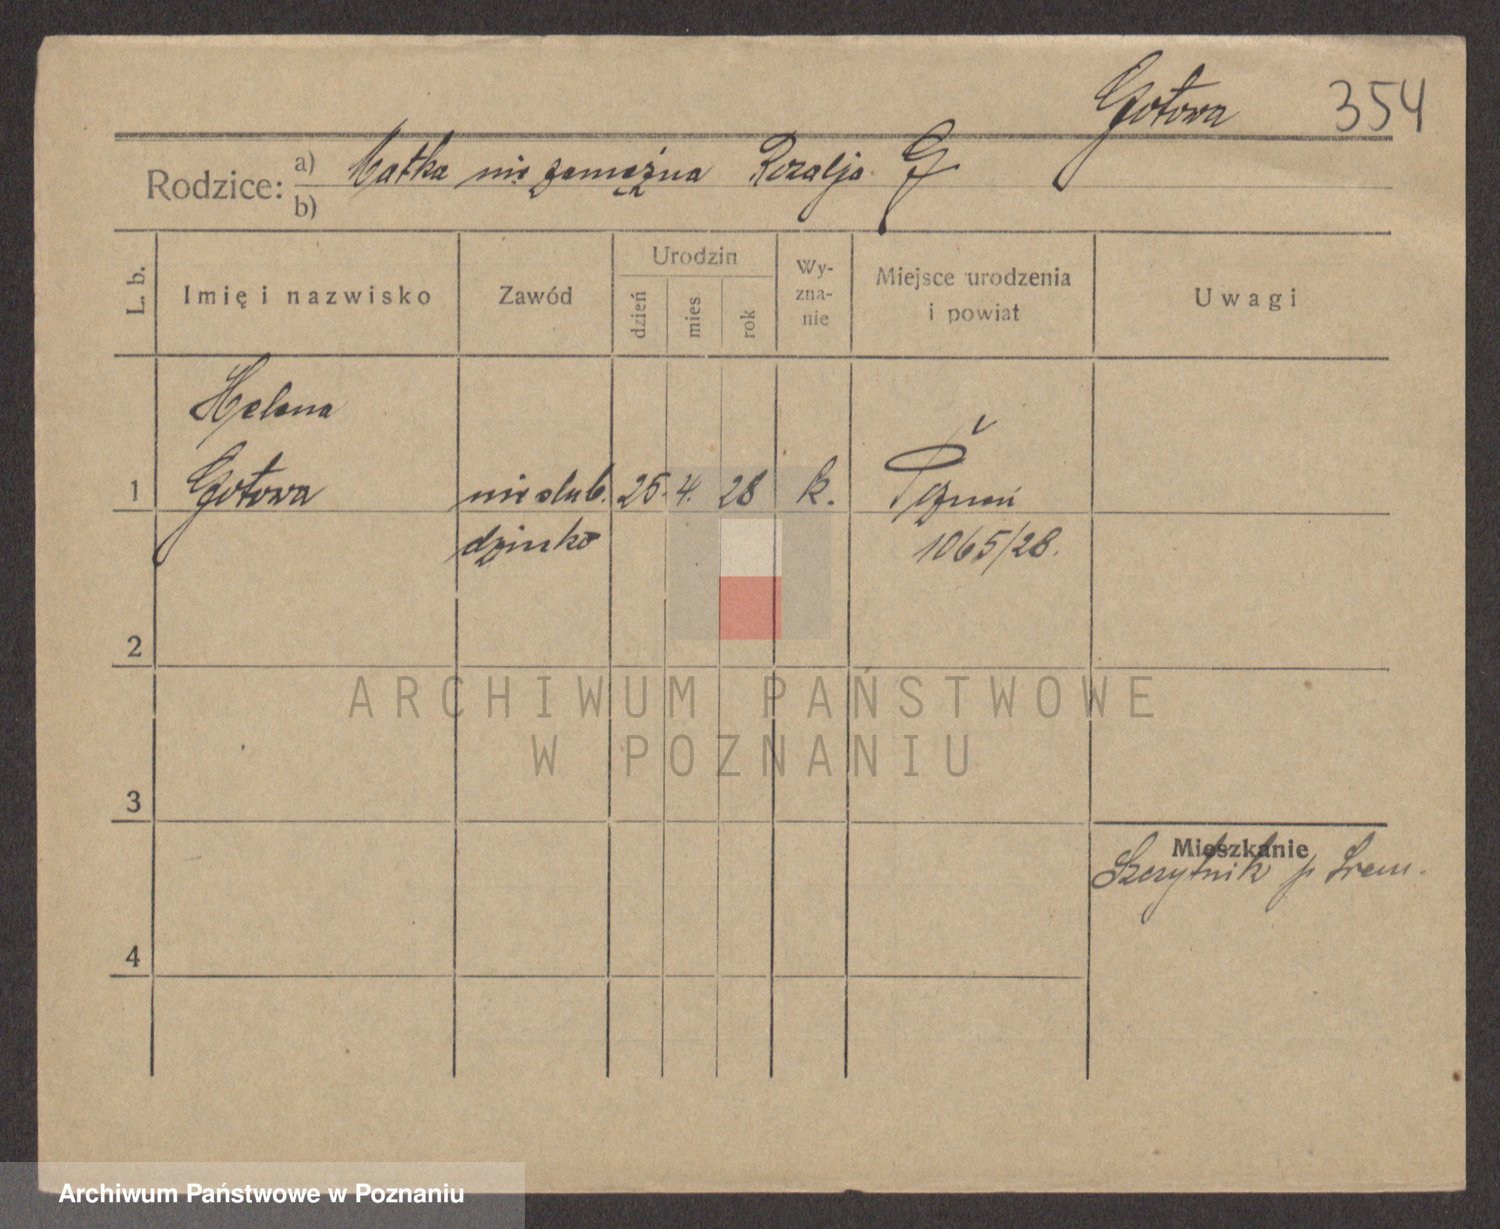 Gotowa 354
Rodzice: a) Matka niezamężna Rozalja G
b)
L. b. Imię i nazwisko Zawód Urodzin dzień mies. rok Wy-zna-nie Miejsce urodzenia i powiat Uwagi
Helena
1 Gotowa nieślub. 25. 4. 28 k. Poznań
dziecko 1065/28.
2
ARCHIWUM PAŃSTWOWE
W POZNANIU
3
Mieszkanie
Szczytnik p Śrem.
4
Archiwum Państwowe w Poznaniu